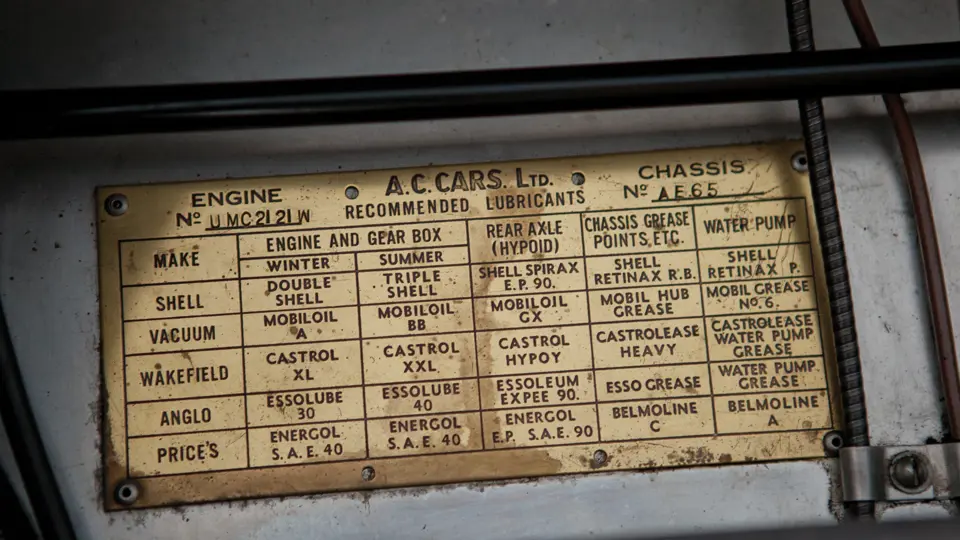 ENGINE
Nº UMC2121W
A.C. CARS. LTD.
RECOMMENDED LUBRICANTS
CHASSIS
Nº AE65
MAKE
ENGINE AND GEAR BOX
WINTER
SUMMER
REAR AXLE
(HYPOID)
CHASSIS GREASE
POINTS, ETC.
WATER PUMP
SHELL
DOUBLE
SHELL
TRIPLE
SHELL
SHELL SPIRAX
E.P. 90.
SHELL
RETINAX R.B.
SHELL
RETINAX P.
VACUUM
MOBILOIL
A
MOBILOIL
BB
MOBILOIL
GX
MOBIL HUB
GREASE
MOBIL GREASE
Nº 6.
WAKEFIELD
CASTROL
XL
CASTROL
XXL
CASTROL
HYPOY
CASTROLEASE
HEAVY
CASTROLEASE
WATER PUMP
GREASE
ANGLO
ESSOLUBE
30
ESSOLUBE
40
ESSOLEUM
EXPEE 90.
ESSO GREASE
WATER PUMP
GREASE
PRICE'S
ENERGOL
S.A.E. 40
ENERGOL
S.A.E. 40
ENERGOL
E.P. S.A.E. 90
BELMOLINE
C
BELMOLINE
A